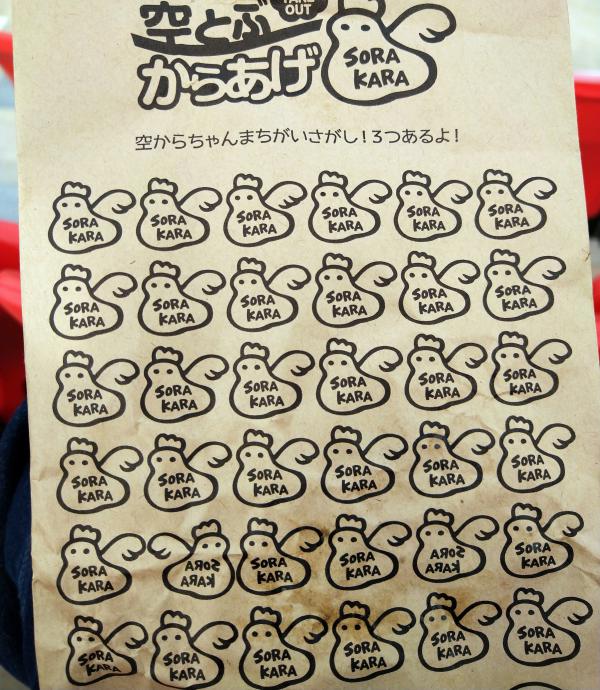 TAKE
OUT
空とぶ
からあげ
SORA
KARA
空からちゃんまちがいさがし!3つあるよ!
SORA SORA SORA SORA SORA SORA
KARA KARA KARA KARA KARA KARA
SORA SORA SORA SORA SORA SORA
KARA KARA KARA KARA KARA KARA
SORA SORA SORA SORA SORA SORA
KARA KARA KARA KARA KARA KARA
SORA SORA SORA SORA SORA SORA
KARA KARA KARA KARA KARA KARA
SORA SORA SORA SORA SORA SORA
KARA KARA KARA KARA KARA KARA
SORA SORA SORA SORA SORA SORA
KARA KARA KARA KARA KARA KARA